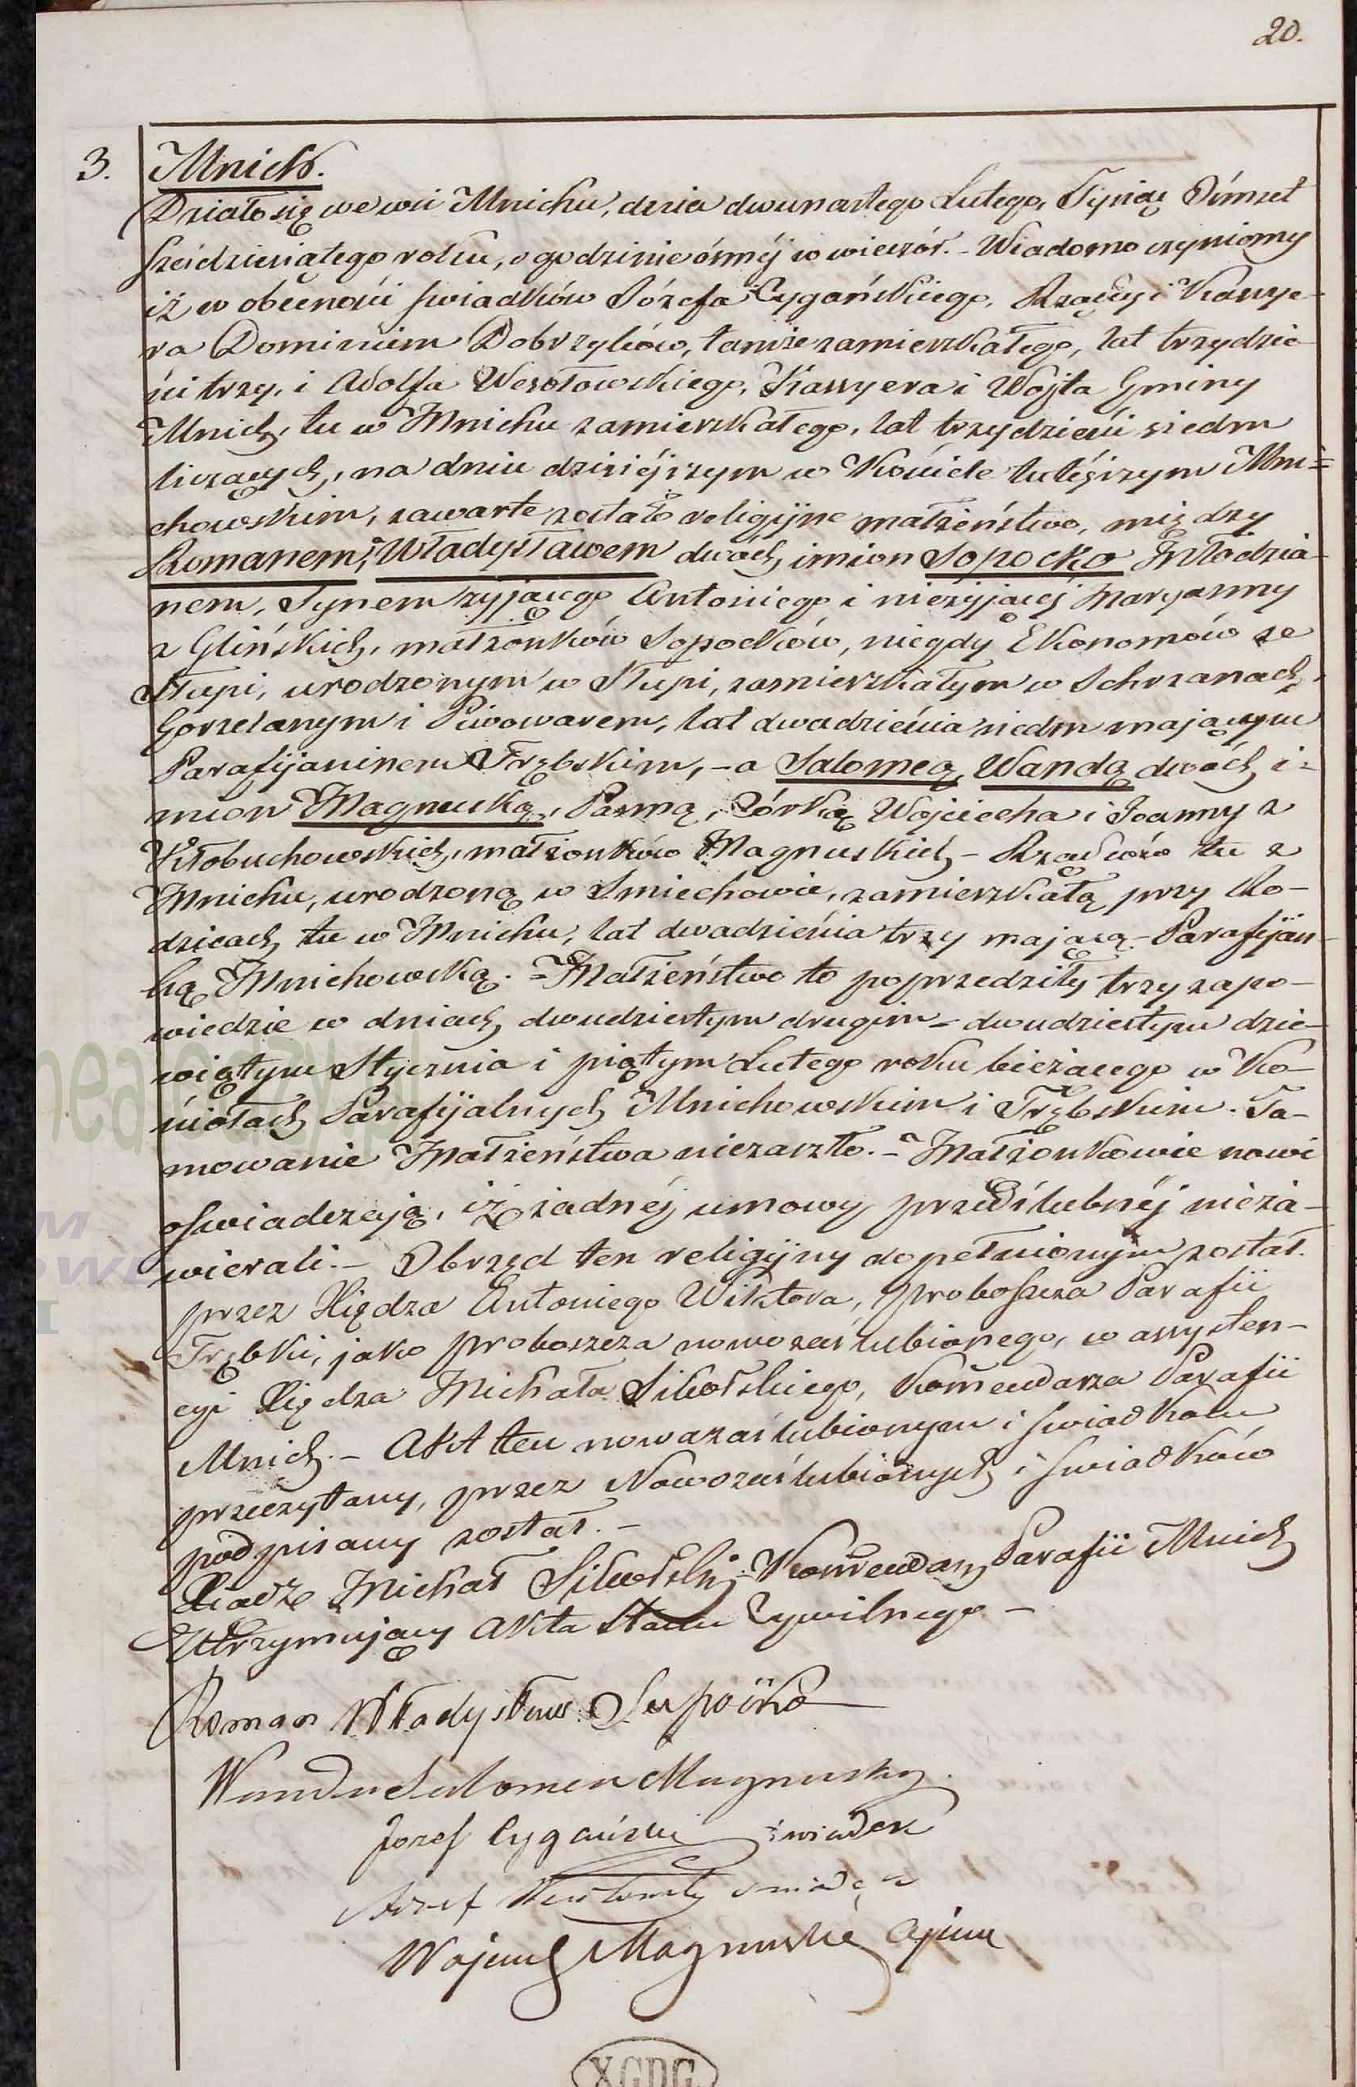 20.
3. Mnich.
Działo się we wsi Mnichu, dnia dwunastego Lutego, Tysiąc Ośmset
sześćdziesiątego roku, o godzinie ósméj w wieczór. - Wiadomo czyniemy
iż w obecności świadków Józefa Cygańskiego, Rządcy i Kassye-
ra Dominium Dobrzyków, tamże zamieszkałego, lat trzydzie-
ści trzy, i Adolfa Wesołowskiego, Kassyera i Wójta Gminy
Mnich, tu w Mnichu zamieszkałego, lat trzydzieści siedm
liczących, na dniu dzisiéjszym w Kościele tutéjszym Mni=
chowskim, zawarte zostało religijne małżeństwo, między
Romanem, Władysławem dwóch imion Sopocko Młodzia-
nem, Synem żyjącego Antoniego i nieżyjącéj Maryanny
z Glińskich, małżonków Sopocków, niegdy Ekonomów ze
Słupi, urodzonym w Słupi, zamieszkałym w Schrzanach,
Gorzelanym i Piwowarem, lat dwadzieścia siedm mającym
Parafijaninem Trębskim, - a Salomeą, Wandą dwóch i-
mion Magnuską, Panną, Córką Wojciecha i Joanny z
Kłobuchowskich, małżonków Magnuskich - Rządców tu z
Mnichu, urodzoną w Smiechowie, zamieszkałą przy Ro-
dzicach tu w Mnichu, lat dwadzieścia trzy mającą - Parafijan-
ką Mnichowską. - Małżeństwo to poprzedziły trzy zapo-
wiedzie w dniach dwudziestym drugim - dwudziestym dzie-
wiątym Stycznia i piątym Lutego roku bieżącego w Ko-
ściołach Parafijalnych Mnichowskim i Trębskim. Ta-
mowanie Małżeństwa niezaszło. - Małżonkowie nowi
oświadczają, iż żadnéj umowy przedślubnéj nieza-
wierali. - Obrzęd ten religijny dopełnionym został
przez Księdza Antoniego Wiktora, proboszcza Parafii
Trębki, jako proboszcza nowozaślubionego, w assysten-
cyi Księdza Michała Sikorskiego, Komendarza Parafii
Mnich. - Akt ten nowozaślubionym i świadkom
przeczytany, przez Nowozaślubionych i świadków
podpisany został. -
Ksiądz Michał Sikorski Komendarz Parafii Mnich
Utrzymujący Akta Stanu Cywilnego -
Roman Władysław Sopoćko
Wanda Salomea Magnuska.
Jozef Cygański świadek
Wesołowski świadek
Wojciech Magnuski Ojciec
XGDG